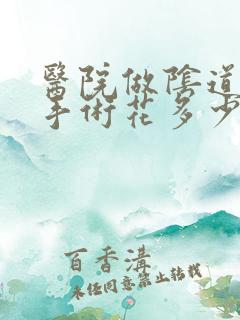 醫院做陰道
手術花多少
百香溝
未經同意禁止轉載